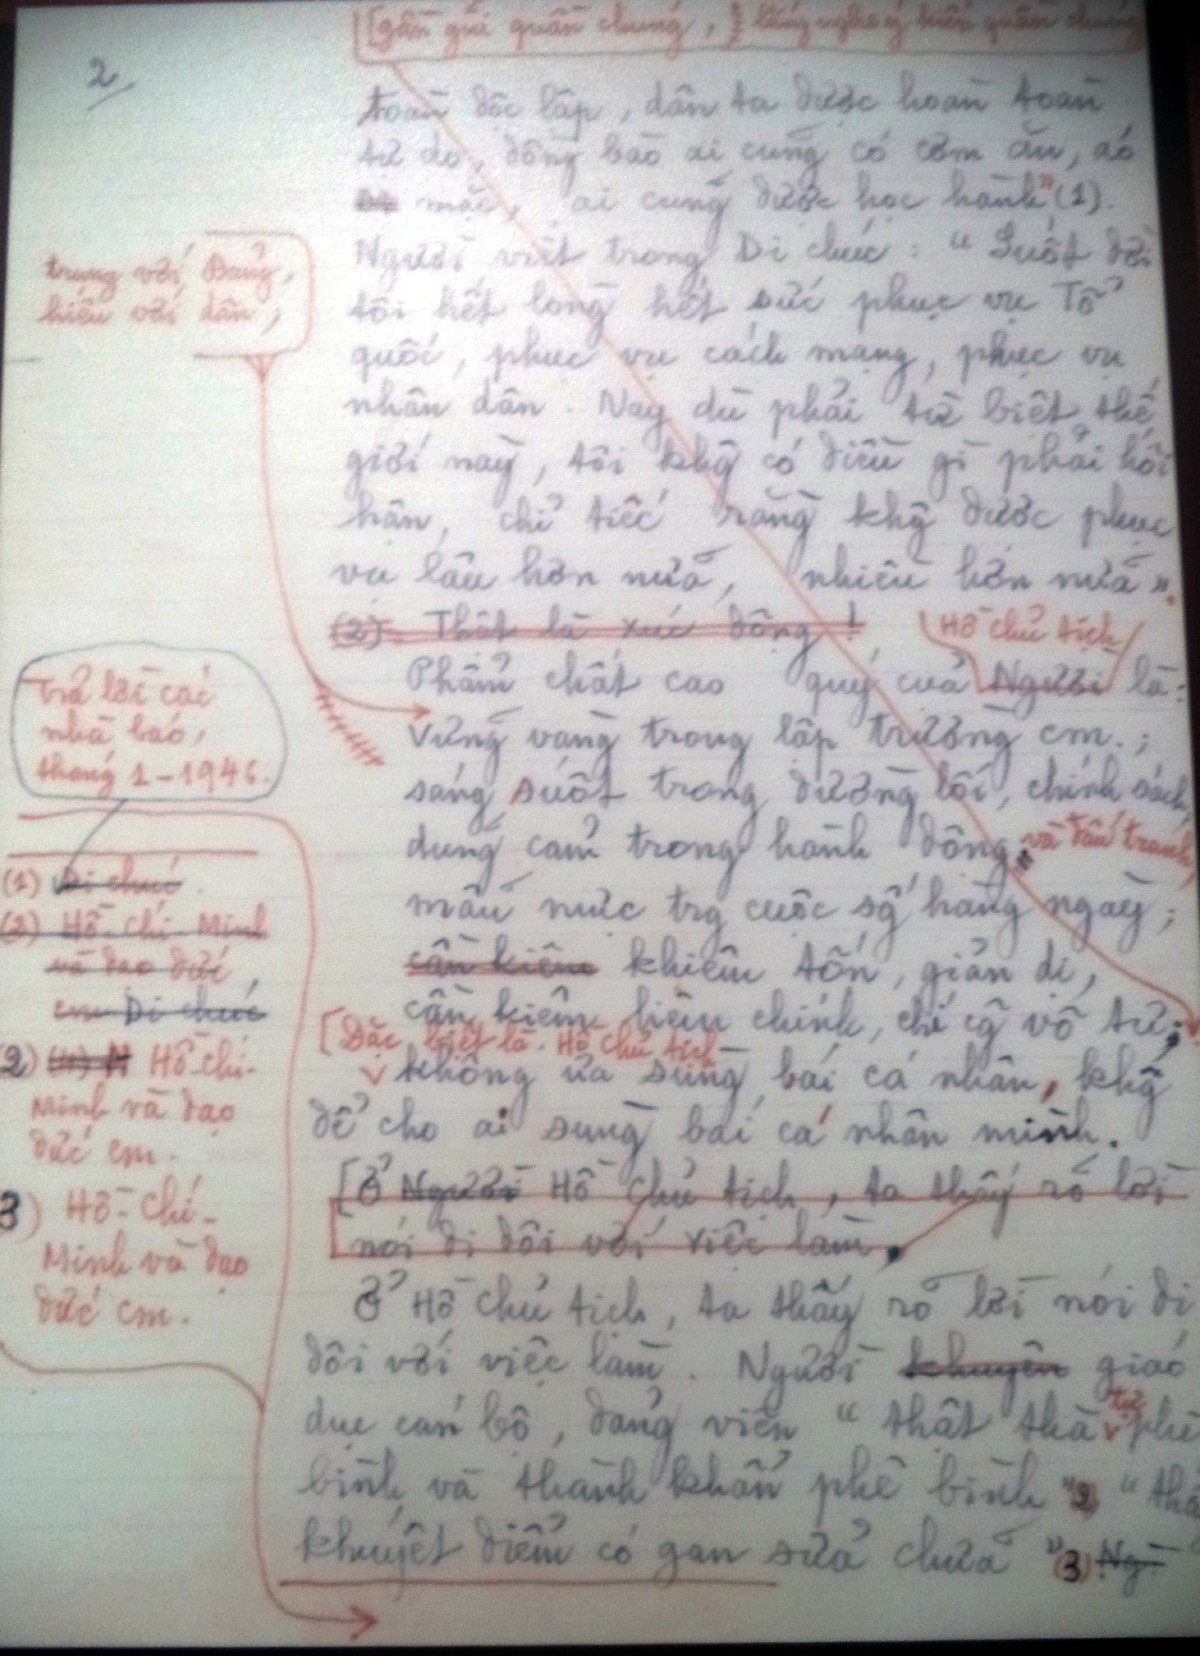 [gần gũi quần chúng, lắng nghe ý kiến quần chúng
2/
toàn độc lập, dân ta được hoàn toàn
tự do, đồng bào ai cũng có cơm ăn, áo
mặc, ai cũng được học hành" (1).
Người viết trong Di chúc: "Suốt đời
tôi hết lòng hết sức phục vụ Tổ
quốc, phục vụ cách mạng, phục vụ
nhân dân. Nay dù phải từ biệt thế
giới này, tôi khg có điều gì phải hối
hận, chỉ tiếc rằng khg được phục
vụ lâu hơn nữa, nhiều hơn nữa".
(2). Thật là xúc động!
Hồ chủ tịch
Phẩm chất cao quý của Người là:
Vững vàng trong lập trường cm.;
sáng suốt trong đường lối, chính sách
dũng cảm trong hành động và đấu tranh,
mẫu mực trg cuộc sg hàng ngày;
cần kiệm khiêm tốn, giản dị,
cần kiệm liêm chính, chí cg vô tư;
[Đặc biệt là Hồ chủ tịch
không ưa sùng bái cá nhân, khg
để cho ai sùng bái cá nhân mình.
[Ở Người Hồ Chủ tịch, ta thấy rõ lời
nói đi đôi với việc làm.
Ở Hồ Chủ tịch, ta thấy rõ lời nói đi
đôi với việc làm. Người khuyên giáo
dục cán bộ, đảng viên "thật thà tự phê
bình và thành khẩn phê bình" 2 "thấ
khuyết điểm có gan sửa chữa" (3) Ng
trung với Đảng,
hiếu với dân,
Trả lời các
nhà báo,
tháng 1-1946.
(1) Di chúc.
(2) Hồ Chí Minh
và đạo đức,
cm Di chúc
2) Hồ Chí-
Minh và đạo
đức cm.
3) Hồ-Chí-
Minh và đạo
đức cm.